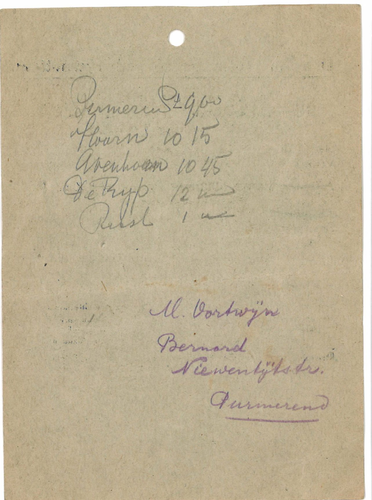 Purmerend 9.00
Hoorn 10 15
Avenhoorn 10 45
De Ryp 12 u
1 u
M. Oortwijn
Bernard
Nieuwentijtstr.
Purmerend